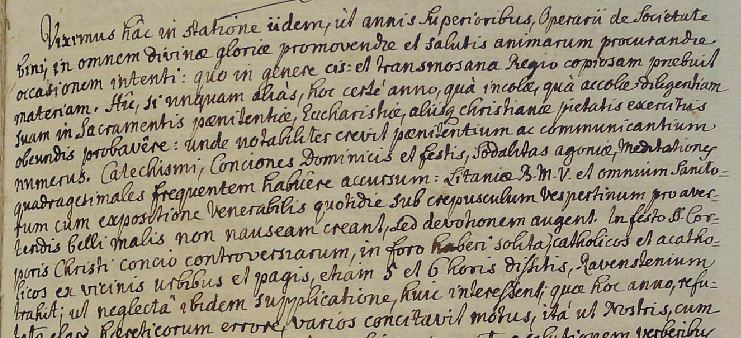 Viximus hâc in statione iidem, ùt annis superioribus, Operarii de Societate
bini, in omnem divinæ gloriæ promovendæ et salutis animarum procurandæ
occasionem intenti: quo in genere cis= et transmosana Regio copiosam præbuit
materiam. Hîc, si unquam aliàs, hoc certè anno, quà incolæ, quà accolæ diligentiam
suam in Sacramentis pœnitentiæ, Eucharistiæ, aliisq christianæ pietatis exercitiis
obeundis probavêre: unde notabiliter crevit pœnitentium ac communicantium
numerus. Catechismi, Conciones Dominicis et festis, sodalitas agoniæ, Meditationes
quadragesimales frequentem habuêre accursum: Litaniæ B.M.V. et omnium Sancto-
rum cum expositione Venerabilis quotidie sub crepusculum vespertinum pro aver-
tendis belli malis non nauseam creant, sed devotionem augent. In festo SS. Cor-
poris Christi concio controversiarum, in foro haberi solita, catholicos et acatho-
licos ex vicinis urbibus et pagis, etiam 5 et 6 horis dissitis, Ravenstenium
trahit; ut neglectâ ibidem supplicatione, huic interessent; quæ hoc anno, refu-
hæreticorum errore, varios concitavit motus, ità ut Nostris, cum
verberibus